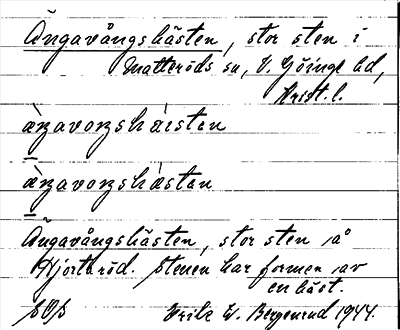 Ängavångshästen, stor sten i
Matteröds sn, V. Göinge hd,
Krist. l.
àŋavoŋshàisten
àŋavoŋshàsten
Ängavångshästen, stor sten på
Hjortaröd. Stenen har formen av
en häst.
Frik W. Bergenrud 1944.